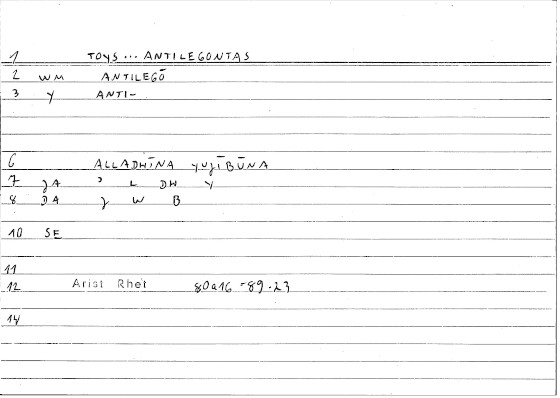 1 TOYS... ANTILEGONTAS
2 WM ANTILEGŌ
3 Y ANTI-
6 ALLADHĪNA YUJĪBŪNA
7 JA ' L DH Y
8 DA J W B
10 SE
11
12 Arist Rhet 80a16-89.23
14